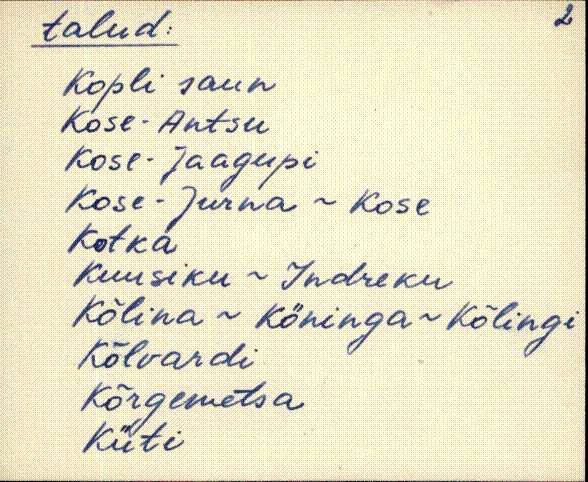 2
talud:
Kopli saun
Kose-Antsu
Kose-Jaagupi
Kose-Jurna ~ Kose
Kotka
Kuusiku ~ Indreku
Kõlina ~ Köninga ~ Kõlingi
Kõlvardi
Kõrgemetsa
Küti